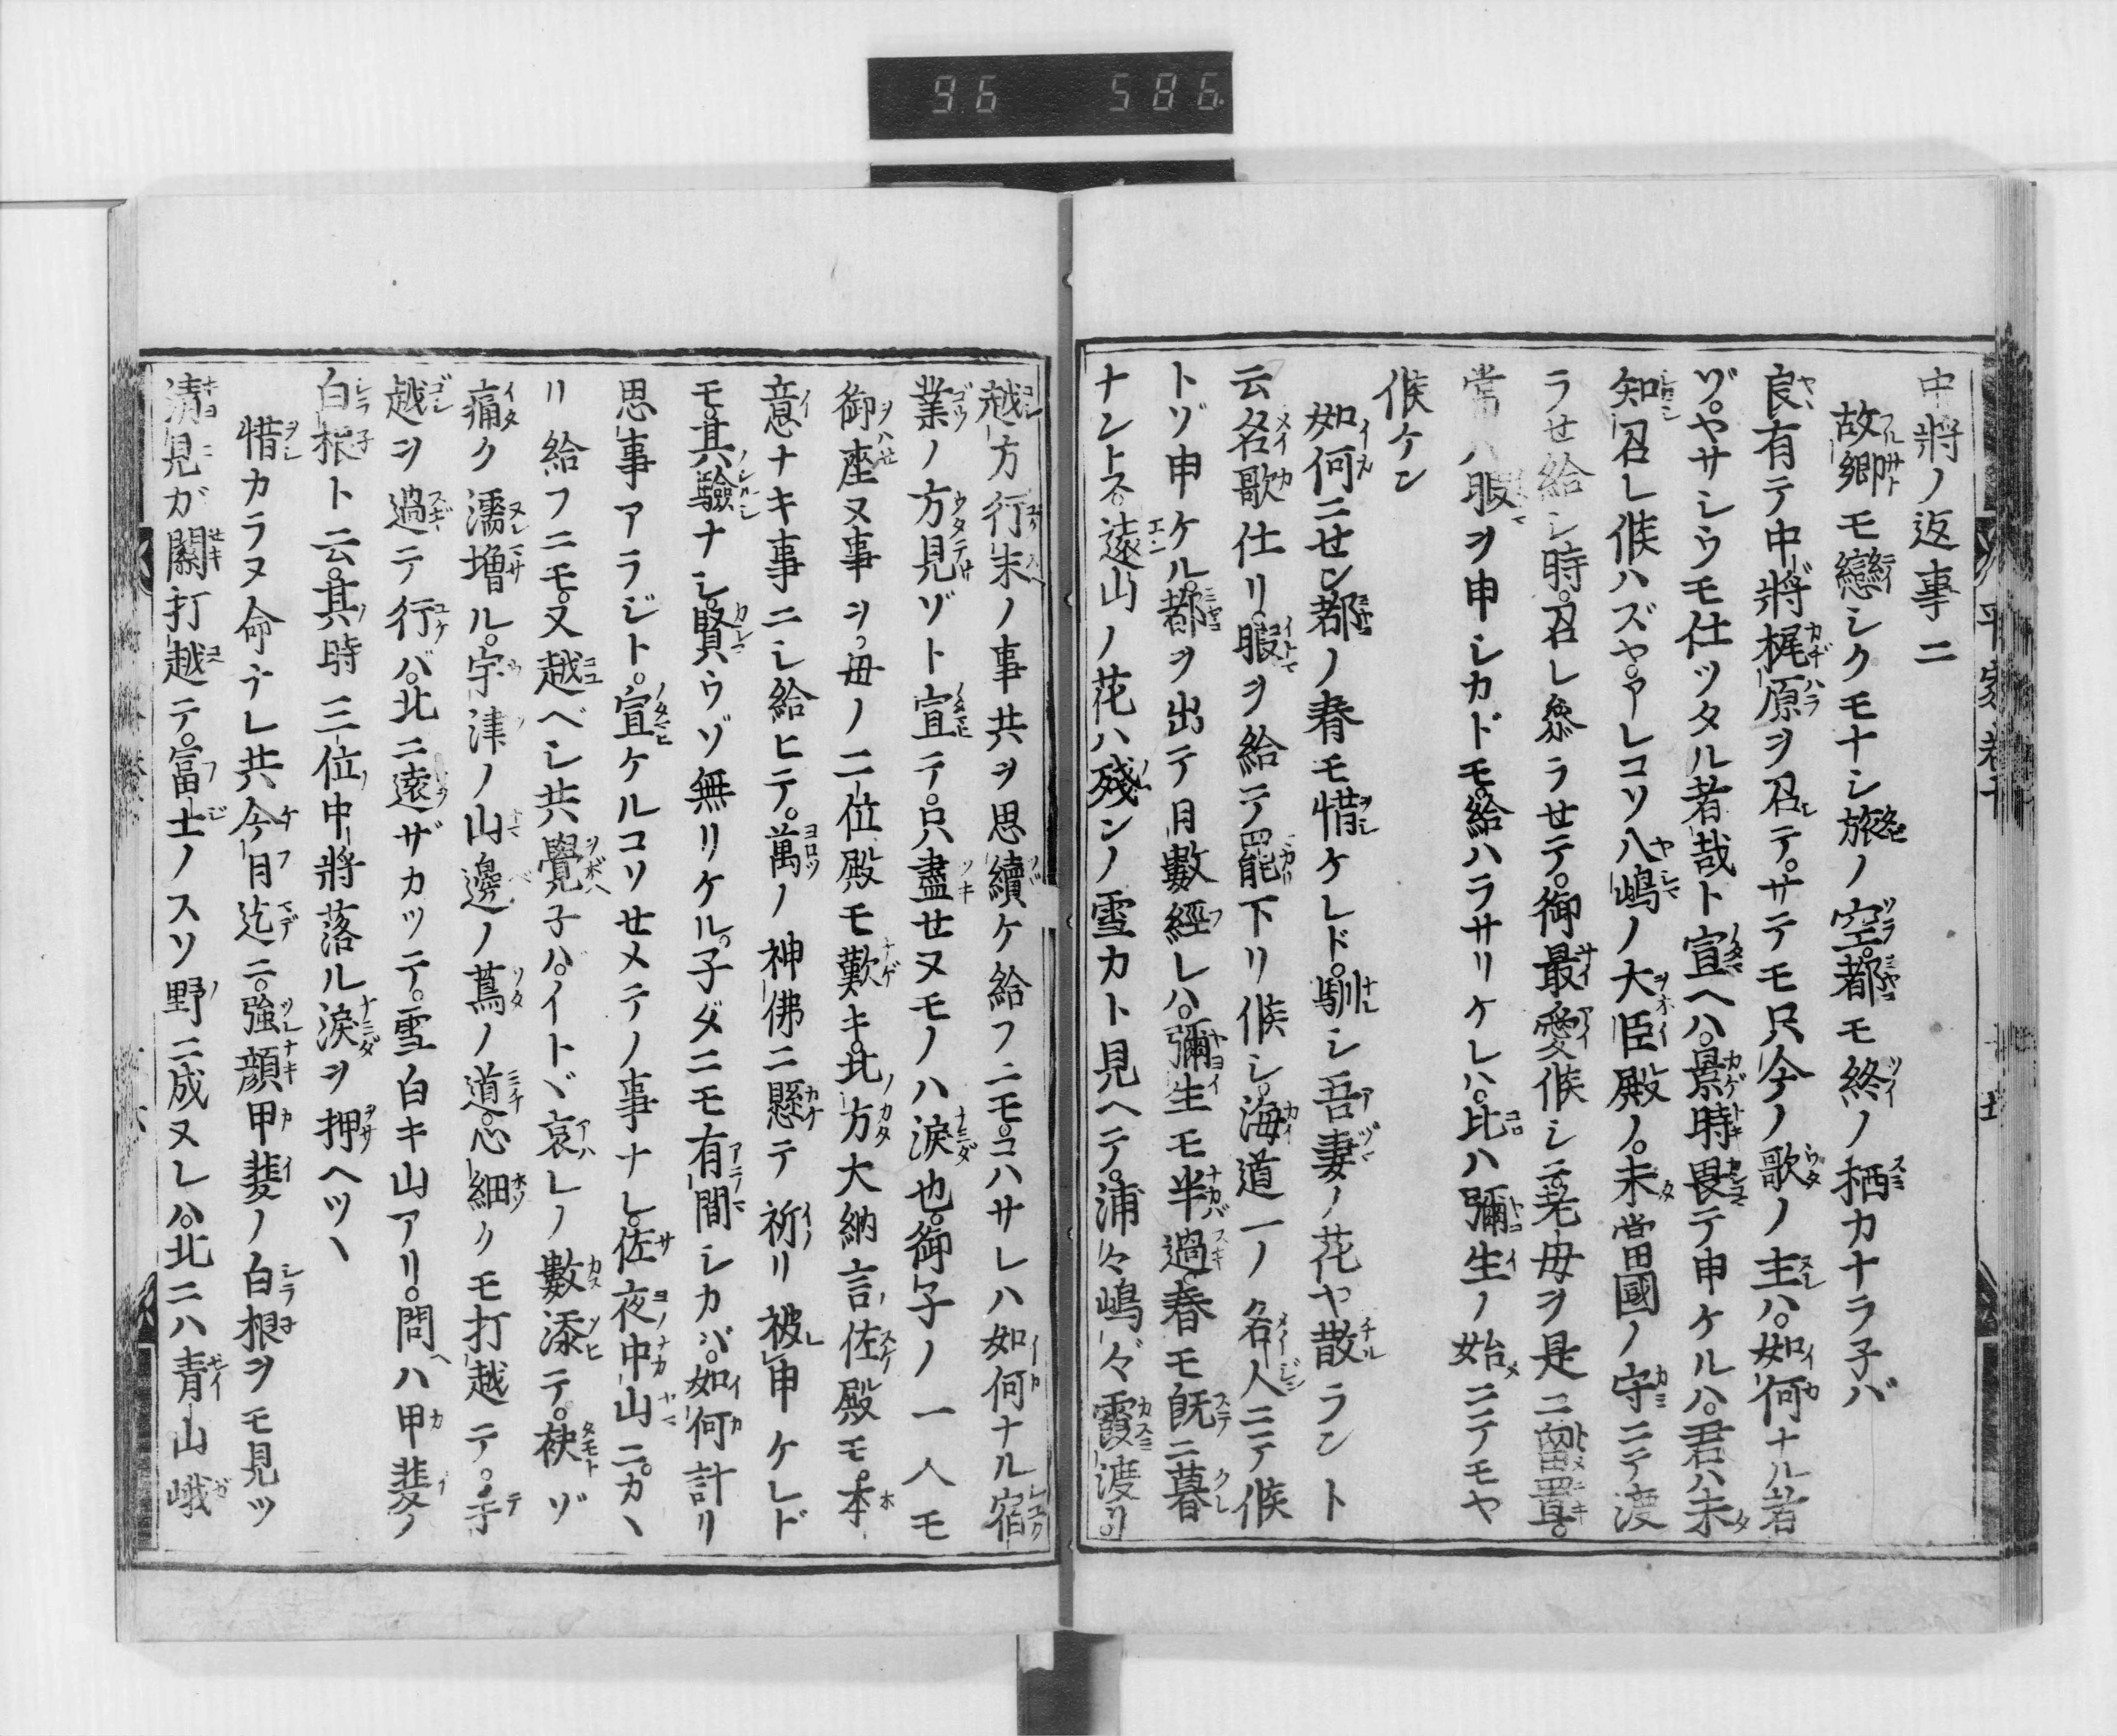 96 586
中將ノ返事ニ
故鄉モ戀シクモナシ旅ノ空。都モ終ノ栖カナラ子バ
良有テ中將梶原ヲ召テ。サテモ只今ノ歌ノ主ハ。如何ナル者
ゾ。ヤサシウモ仕ツタル者哉ト宣ヘハ。景時畏テ申ケルハ。君ハ未
知召レ候ハズヤ。アレコソ八嶋ノ大臣殿ノ。未當國ノ守ニテ渡
ラせ給シ時。召レ參ラせテ。御最愛候シニ。老母ヲ是ニ留置。
常ハ暇ヲ申シカドモ。給ハラサリケレハ。比ハ彌生ノ始ニテモヤ
候ケン
如何ニせン都ノ春モ惜ケレド。馴シ吾妻ノ花ヤ散ラント
云名歌仕リ。暇ヲ給テ罷下リ候シ。海道一ノ名人ニテ候
トゾ申ケル。都ヲ出テ日數經レハ。彌生モ半過。春モ既ニ暮
ナントス。遠山ノ花ハ殘ンノ雪カト見ヘテ。浦々嶋々霞渡リ。
越方行末ノ事共ヲ思續ケ給フニモ。コハサレハ如何ナル宿
業ノ方見ゾト宣テ。只盡せヌモノハ淚也。御子ノ一人モ
御座ヌ事ヲ。母ノ二位殿モ歎キ。北方大納言佐殿モ。本
意ナキ事ニシ給ヒテ。萬ノ神佛ニ懸テ祈リ被申ケレド
モ。其驗ナシ。賢ウゾ無リケル。子ダニモ有間シカバ。如何計リ
思事アラジト。宣ケルコソせメテノ事ナレ。佐夜中山ニ。カヽ
リ給フニモ。又越ベシ共覺子バ。イトヾ哀レノ數添テ。袂ゾ
痛ク濡増ル。宇津ノ山邊ノ蔦ノ道。心細クモ打越テ。手
越ヲ過テ行バ。北ニ遠ザカツテ。雪白キ山アリ。問ハ甲斐ノ
白根ト云。其時三位中將落ル淚ヲ押ヘツヽ
惜カラヌ命ナレ共今日迄ニ。強顔甲斐ノ白根ヲモ見ツ
淸見ガ關打越テ。富士ノスソ野ニ成ヌレハ。北ニハ青山峨